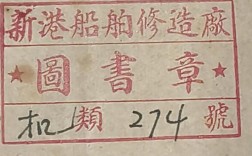 新港船舶修造廠
★圖書章★
类 274 號